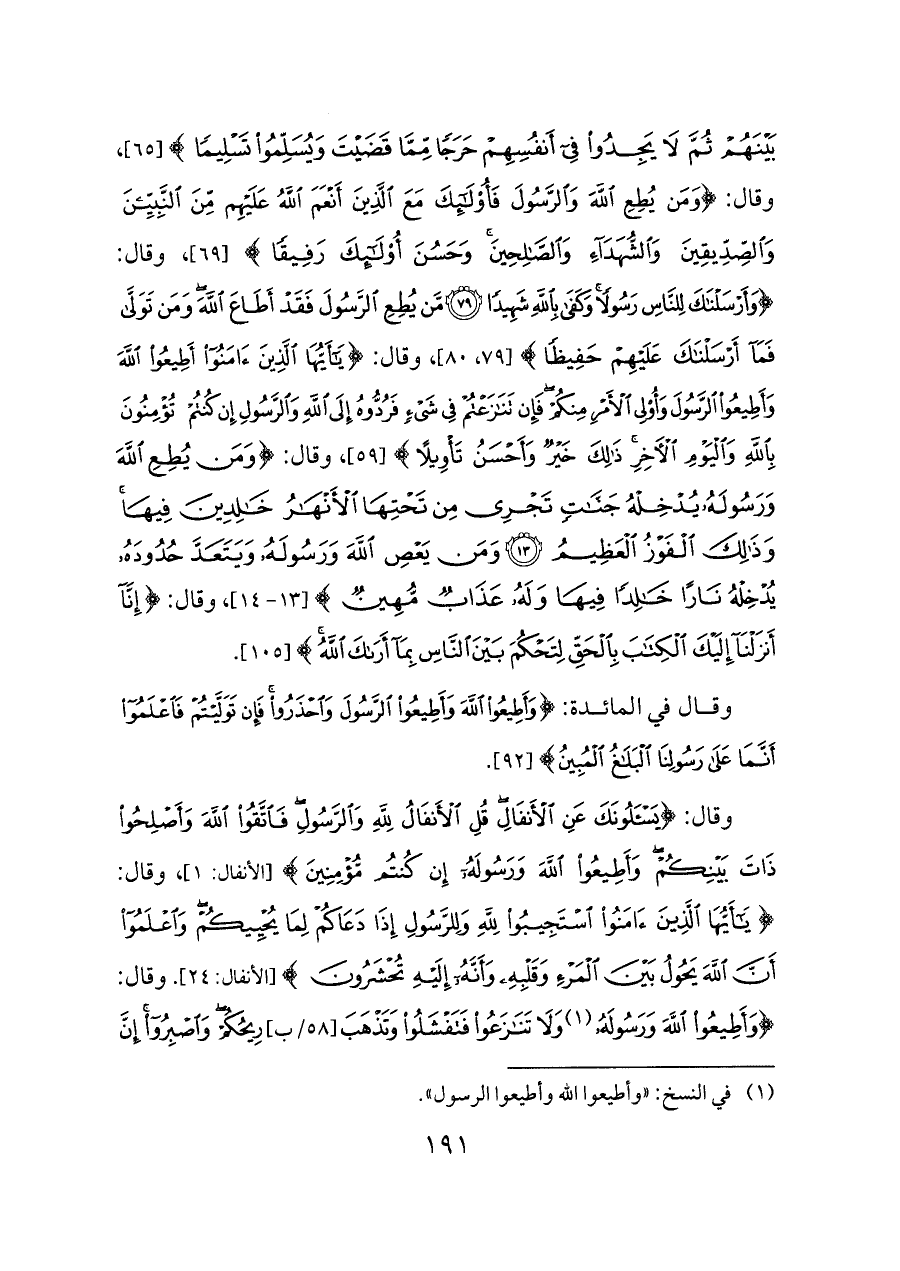 بَيْنَهُمْ ثُمَّ لَا يَجِدُوا۟ فِىٓ أَنفُسِهِمْ حَرَجًا مِّمَّا قَضَيْتَ وَيُسَلِّمُوا۟ تَسْلِيمًا ﴾ [٦٥]،
وقال: ﴿وَمَن يُطِعِ ٱللَّهَ وَٱلرَّسُولَ فَأُو۟لَٰٓئِكَ مَعَ ٱلَّذِينَ أَنْعَمَ ٱللَّهُ عَلَيْهِم مِّنَ ٱلنَّبِيِّـۧنَ
وَٱلصِّدِّيقِينَ وَٱلشُّهَدَآءِ وَٱلصَّٰلِحِينَ ۚ وَحَسُنَ أُو۟لَٰٓئِكَ رَفِيقًا ﴾ [٦٩]، وقال:
﴿وَأَرْسَلْنَٰكَ لِلنَّاسِ رَسُولًا ۚ وَكَفَىٰ بِٱللَّهِ شَهِيدًا ٧٩ مَّن يُطِعِ ٱلرَّسُولَ فَقَدْ أَطَاعَ ٱللَّهَ ۖ وَمَن تَوَلَّىٰ
فَمَآ أَرْسَلْنَٰكَ عَلَيْهِمْ حَفِيظًا ﴾ [٧٩، ٨٠]، وقال: ﴿ يَٰٓأَيُّهَا ٱلَّذِينَ ءَامَنُوٓا۟ أَطِيعُوا۟ ٱللَّهَ
وَأَطِيعُوا۟ ٱلرَّسُولَ وَأُو۟لِى ٱلْأَمْرِ مِنكُمْ ۖ فَإِن تَنَٰزَعْتُمْ فِى شَىْءٍ فَرُدُّوهُ إِلَى ٱللَّهِ وَٱلرَّسُولِ إِن كُنتُمْ تُؤْمِنُونَ
بِٱللَّهِ وَٱلْيَوْمِ ٱلْـَٔاخِرِ ۚ ذَٰلِكَ خَيْرٌ وَأَحْسَنُ تَأْوِيلًا ﴾ [٥٩]، وقال: ﴿وَمَن يُطِعِ ٱللَّهَ
وَرَسُولَهُۥ يُدْخِلْهُ جَنَّٰتٍ تَجْرِى مِن تَحْتِهَا ٱلْأَنْهَٰرُ خَٰلِدِينَ فِيهَا ۚ
وَذَٰلِكَ ٱلْفَوْزُ ٱلْعَظِيمُ ١٣ وَمَن يَعْصِ ٱللَّهَ وَرَسُولَهُۥ وَيَتَعَدَّ حُدُودَهُۥ
يُدْخِلْهُ نَارًا خَٰلِدًا فِيهَا وَلَهُۥ عَذَابٌ مُّهِينٌ ﴾ [١٣-١٤]، وقال: ﴿ إِنَّآ
أَنزَلْنَآ إِلَيْكَ ٱلْكِتَٰبَ بِٱلْحَقِّ لِتَحْكُمَ بَيْنَ ٱلنَّاسِ بِمَآ أَرَىٰكَ ٱللَّهُ ۚ ﴾ [١٠٥].
وقال في المائدة: ﴿وَأَطِيعُوا۟ ٱللَّهَ وَأَطِيعُوا۟ ٱلرَّسُولَ وَٱحْذَرُوا۟ ۚ فَإِن تَوَلَّيْتُمْ فَٱعْلَمُوٓا۟
أَنَّمَا عَلَىٰ رَسُولِنَا ٱلْبَلَٰغُ ٱلْمُبِينُ﴾ [٩٢].
وقال: ﴿يَسْـَٔلُونَكَ عَنِ ٱلْأَنفَالِ ۖ قُلِ ٱلْأَنفَالُ لِلَّهِ وَٱلرَّسُولِ ۖ فَٱتَّقُوا۟ ٱللَّهَ وَأَصْلِحُوا۟
ذَاتَ بَيْنِكُمْ ۖ وَأَطِيعُوا۟ ٱللَّهَ وَرَسُولَهُۥٓ إِن كُنتُم مُّؤْمِنِينَ ﴾ [الأنفال: ١]، وقال:
﴿ يَٰٓأَيُّهَا ٱلَّذِينَ ءَامَنُوا۟ ٱسْتَجِيبُوا۟ لِلَّهِ وَلِلرَّسُولِ إِذَا دَعَاكُمْ لِمَا يُحْيِيكُمْ ۖ وَٱعْلَمُوٓا۟
أَنَّ ٱللَّهَ يَحُولُ بَيْنَ ٱلْمَرْءِ وَقَلْبِهِۦ وَأَنَّهُۥٓ إِلَيْهِ تُحْشَرُونَ ﴾ [الأنفال: ٢٤]. وقال:
﴿وَأَطِيعُوا۟ ٱللَّهَ وَرَسُولَهُۥ (١) وَلَا تَنَٰزَعُوا۟ فَتَفْشَلُوا۟ وَتَذْهَبَ [٥٨/ب] رِيحُكُمْ ۖ وَٱصْبِرُوٓا۟ ۚ إِنَّ
(١) في النسخ: «وأطيعوا الله وأطيعوا الرسول».
١٩١